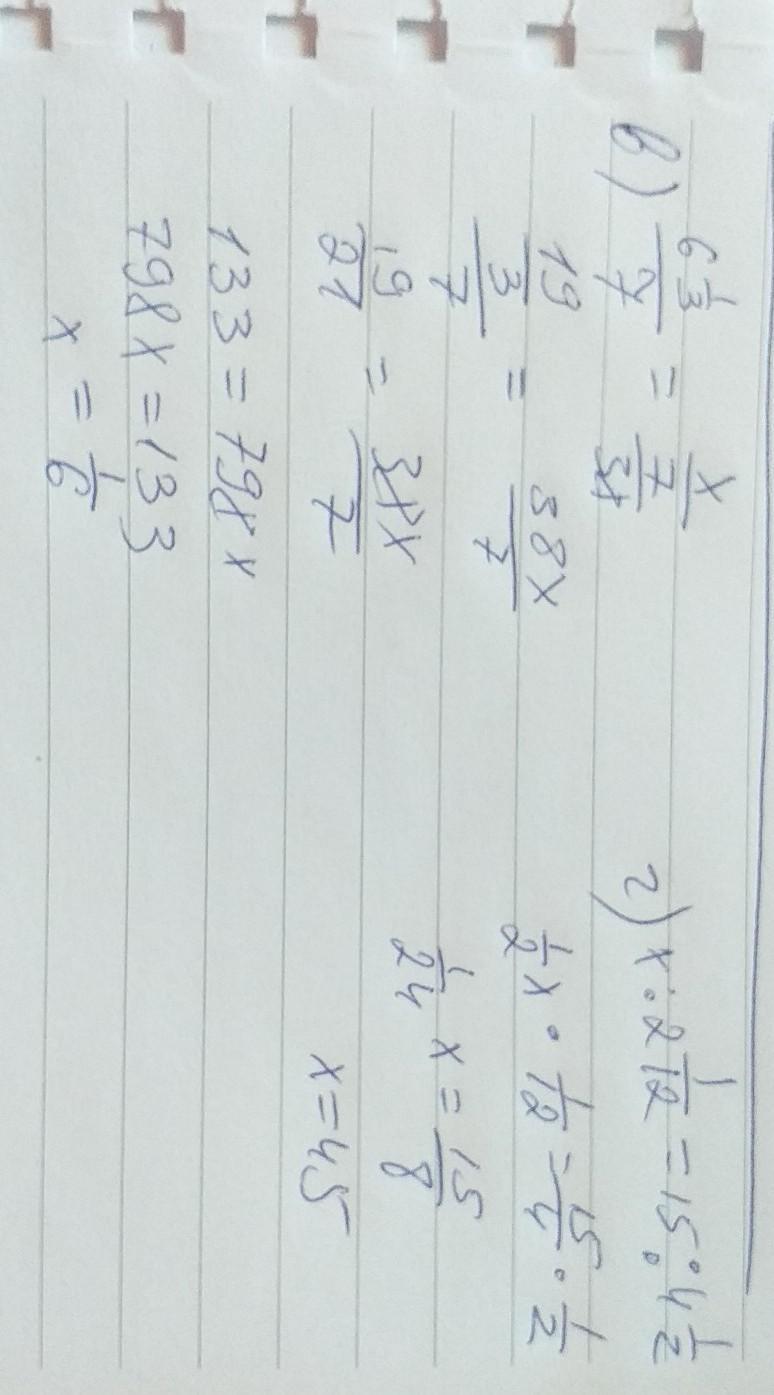 в) (6 1/3)/7 = x/(7/38)
(19/3)/7 = 38x/7
19/21 = 38x/7
133 = 798x
798x = 133
x = 1/6
г) x : 2 1/12 = 15 : 4 1/2
1/2 x · 1/12 = 15/4 · 1/2
1/24 x = 15/8
x = 45